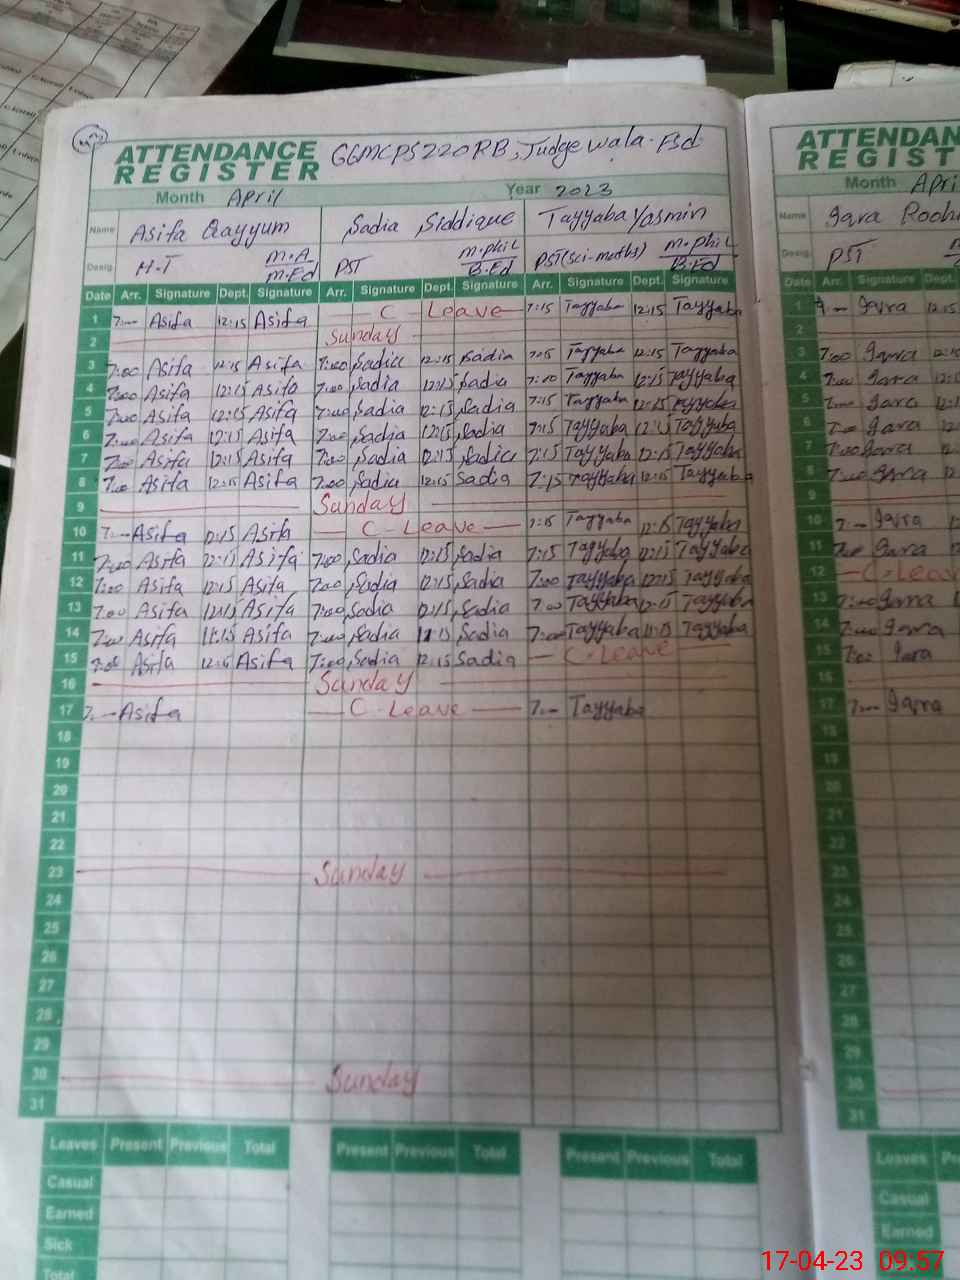 ATTENDANCE REGISTER GGMCPS 220 RB, Judge wala. Fsd
Month April Year 2023
Name Asifa Qayyum Sadia Siddique Tayyaba Yasmin
Desig. H.T M.A M.Ed PST M.phil B.Ed PST (sci-maths) M.phil B.Ed
Date Arr. Signature Dept. Signature Arr. Signature Dept. Signature Arr. Signature Dept. Signature
1 7:— Asifa 12:15 Asifa — C - Leave — 7:15 Tayyaba 12:15 Tayyaba
2 Sunday
3 7:00 Asifa 12:15 Asifa 7:00 Sadia 12:15 Sadia 7:15 Tayyaba 12:15 Tayyaba
4 7:00 Asifa 12:15 Asifa 7:00 Sadia 12:15 Sadia 7:10 Tayyaba 12:15 Tayyaba
5 7:00 Asifa 12:15 Asifa 7:00 Sadia 12:15 Sadia 7:15 Tayyaba 12:15 Tayyaba
6 7:00 Asifa 12:15 Asifa 7:00 Sadia 12:15 Sadia 7:15 Tayyaba 12:15 Tayyaba
7 7:00 Asifa 12:15 Asifa 7:00 Sadia 12:15 Sadia 7:15 Tayyaba 12:15 Tayyaba
8 7:00 Asifa 12:15 Asifa 7:00 Sadia 12:15 Sadia 7:15 Tayyaba 12:15 Tayyaba
9 Sunday
10 7:— Asifa 12:15 Asifa C - Leave — 7:15 Tayyaba 12:15 Tayyaba
11 7:00 Asifa 12:15 Asifa 7:00 Sadia 12:15 Sadia 7:15 Tayyaba 12:15 Tayyaba
12 7:00 Asifa 12:15 Asifa 7:00 Sadia 12:15 Sadia 7:00 Tayyaba 12:15 Tayyaba
13 7:00 Asifa 12:15 Asifa 7:00 Sadia 12:15 Sadia 7:00 Tayyaba 12:15 Tayyaba
14 7:00 Asifa 11:15 Asifa 7:00 Sadia 11:15 Sadia 7:00 Tayyaba 11:15 Tayyaba
15 7:00 Asifa 12:15 Asifa 7:00 Sadia 12:15 Sadia — C - Leave
16 Sunday
17 7:— Asifa — C - Leave — 7:— Tayyaba
18
19
20
21
22
23 Sunday
24
25
26
27
28
29
30 Sunday
31
Leaves Present Previous Total Present Previous Total Present Previous Total
Casual
Earned
Sick
Total
ATTENDAN
REGIST
Month Apri
Name Iqra
Desig. PST
Date Arr. Signature Dept.
1 7:— Iqra 12:15
2
3 7:00 Iqra
4 7:00 Iqra
5 7:— Iqra
6 7:00 Iqra
7 7:00 Iqra
8 7:00 Iqra
9
10 7:— Iqra
11 7:00 Iqra
12 — C - Leav
13 7:00 Iqra
14 7:00 Iqra
15 7:00 Iqra
16
17 7:— Iqra
18
19
20
21
22
23
24
25
26
27
28
29
30
31
Leaves
Casual
Earned
17-04-23 09:57